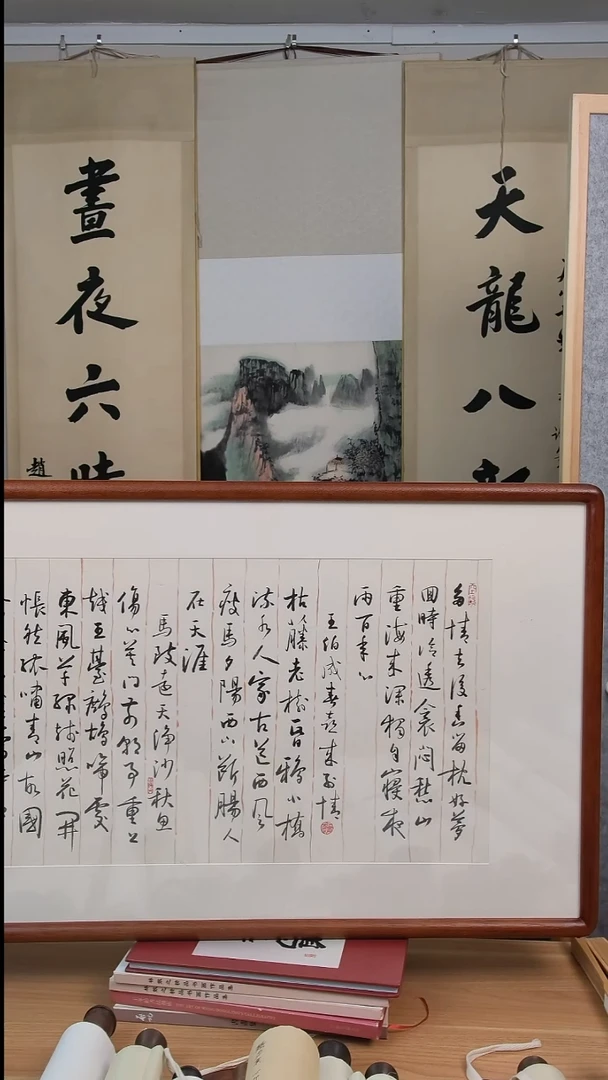 天龍八部
晝夜六時
趙
多情去後香留枕好夢
回時冷透衾悶愁山
重海来深獨自寢夜
雨百年心
王伯成春喜来别情
枯藤老樹昏鴉小橋
流水人家古道西風
瘦馬夕陽西下斷腸人
在天涯
馬致遠天净沙秋思
傷心莫問前朝事重上
越王臺鷓鴣啼處
東風草綠殘照花開
悵然孤嘯青山故國